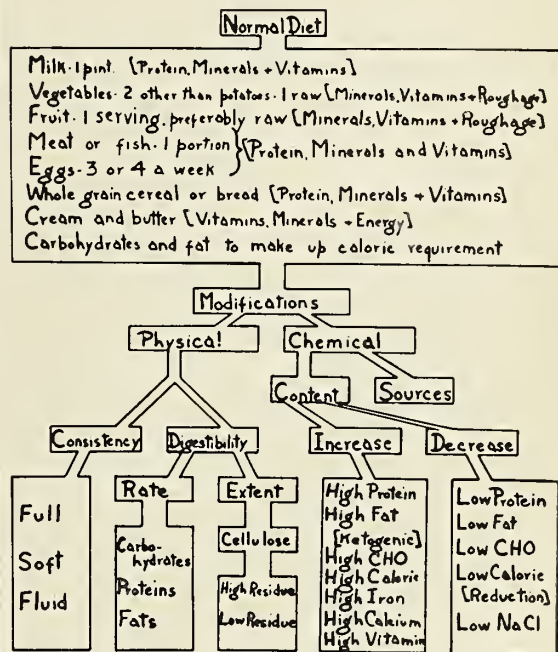 Normal Diet
Milk - 1 pint. [Protein, Minerals + Vitamins]
Vegetables - 2 other than potatoes - 1 raw [Minerals, Vitamins + Roughage]
Fruit - 1 serving, preferably raw [Minerals, Vitamins + Roughage]
Meat or fish - 1 portion
Eggs - 3 or 4 a week
} [Protein, Minerals and Vitamins]
Whole grain cereal or bread [Protein, Minerals + Vitamins]
Cream and butter [Vitamins, Minerals + Energy]
Carbohydrates and fat to make up caloric requirement
Modifications
Physical
Chemical
Content
Sources
Consistency
Digestibility
Increase
Decrease
Full
Soft
Fluid
Rate
Carbo-
hydrates
Proteins
Fats
Extent
Cellulose
High Residue
Low Residue
High Protein
High Fat
[Ketogenic]
High CHO
High Caloric
High Iron
High Calcium
High Vitamin
Low Protein
Low Fat
Low CHO
Low Caloric
[Reduction]
Low NaCl